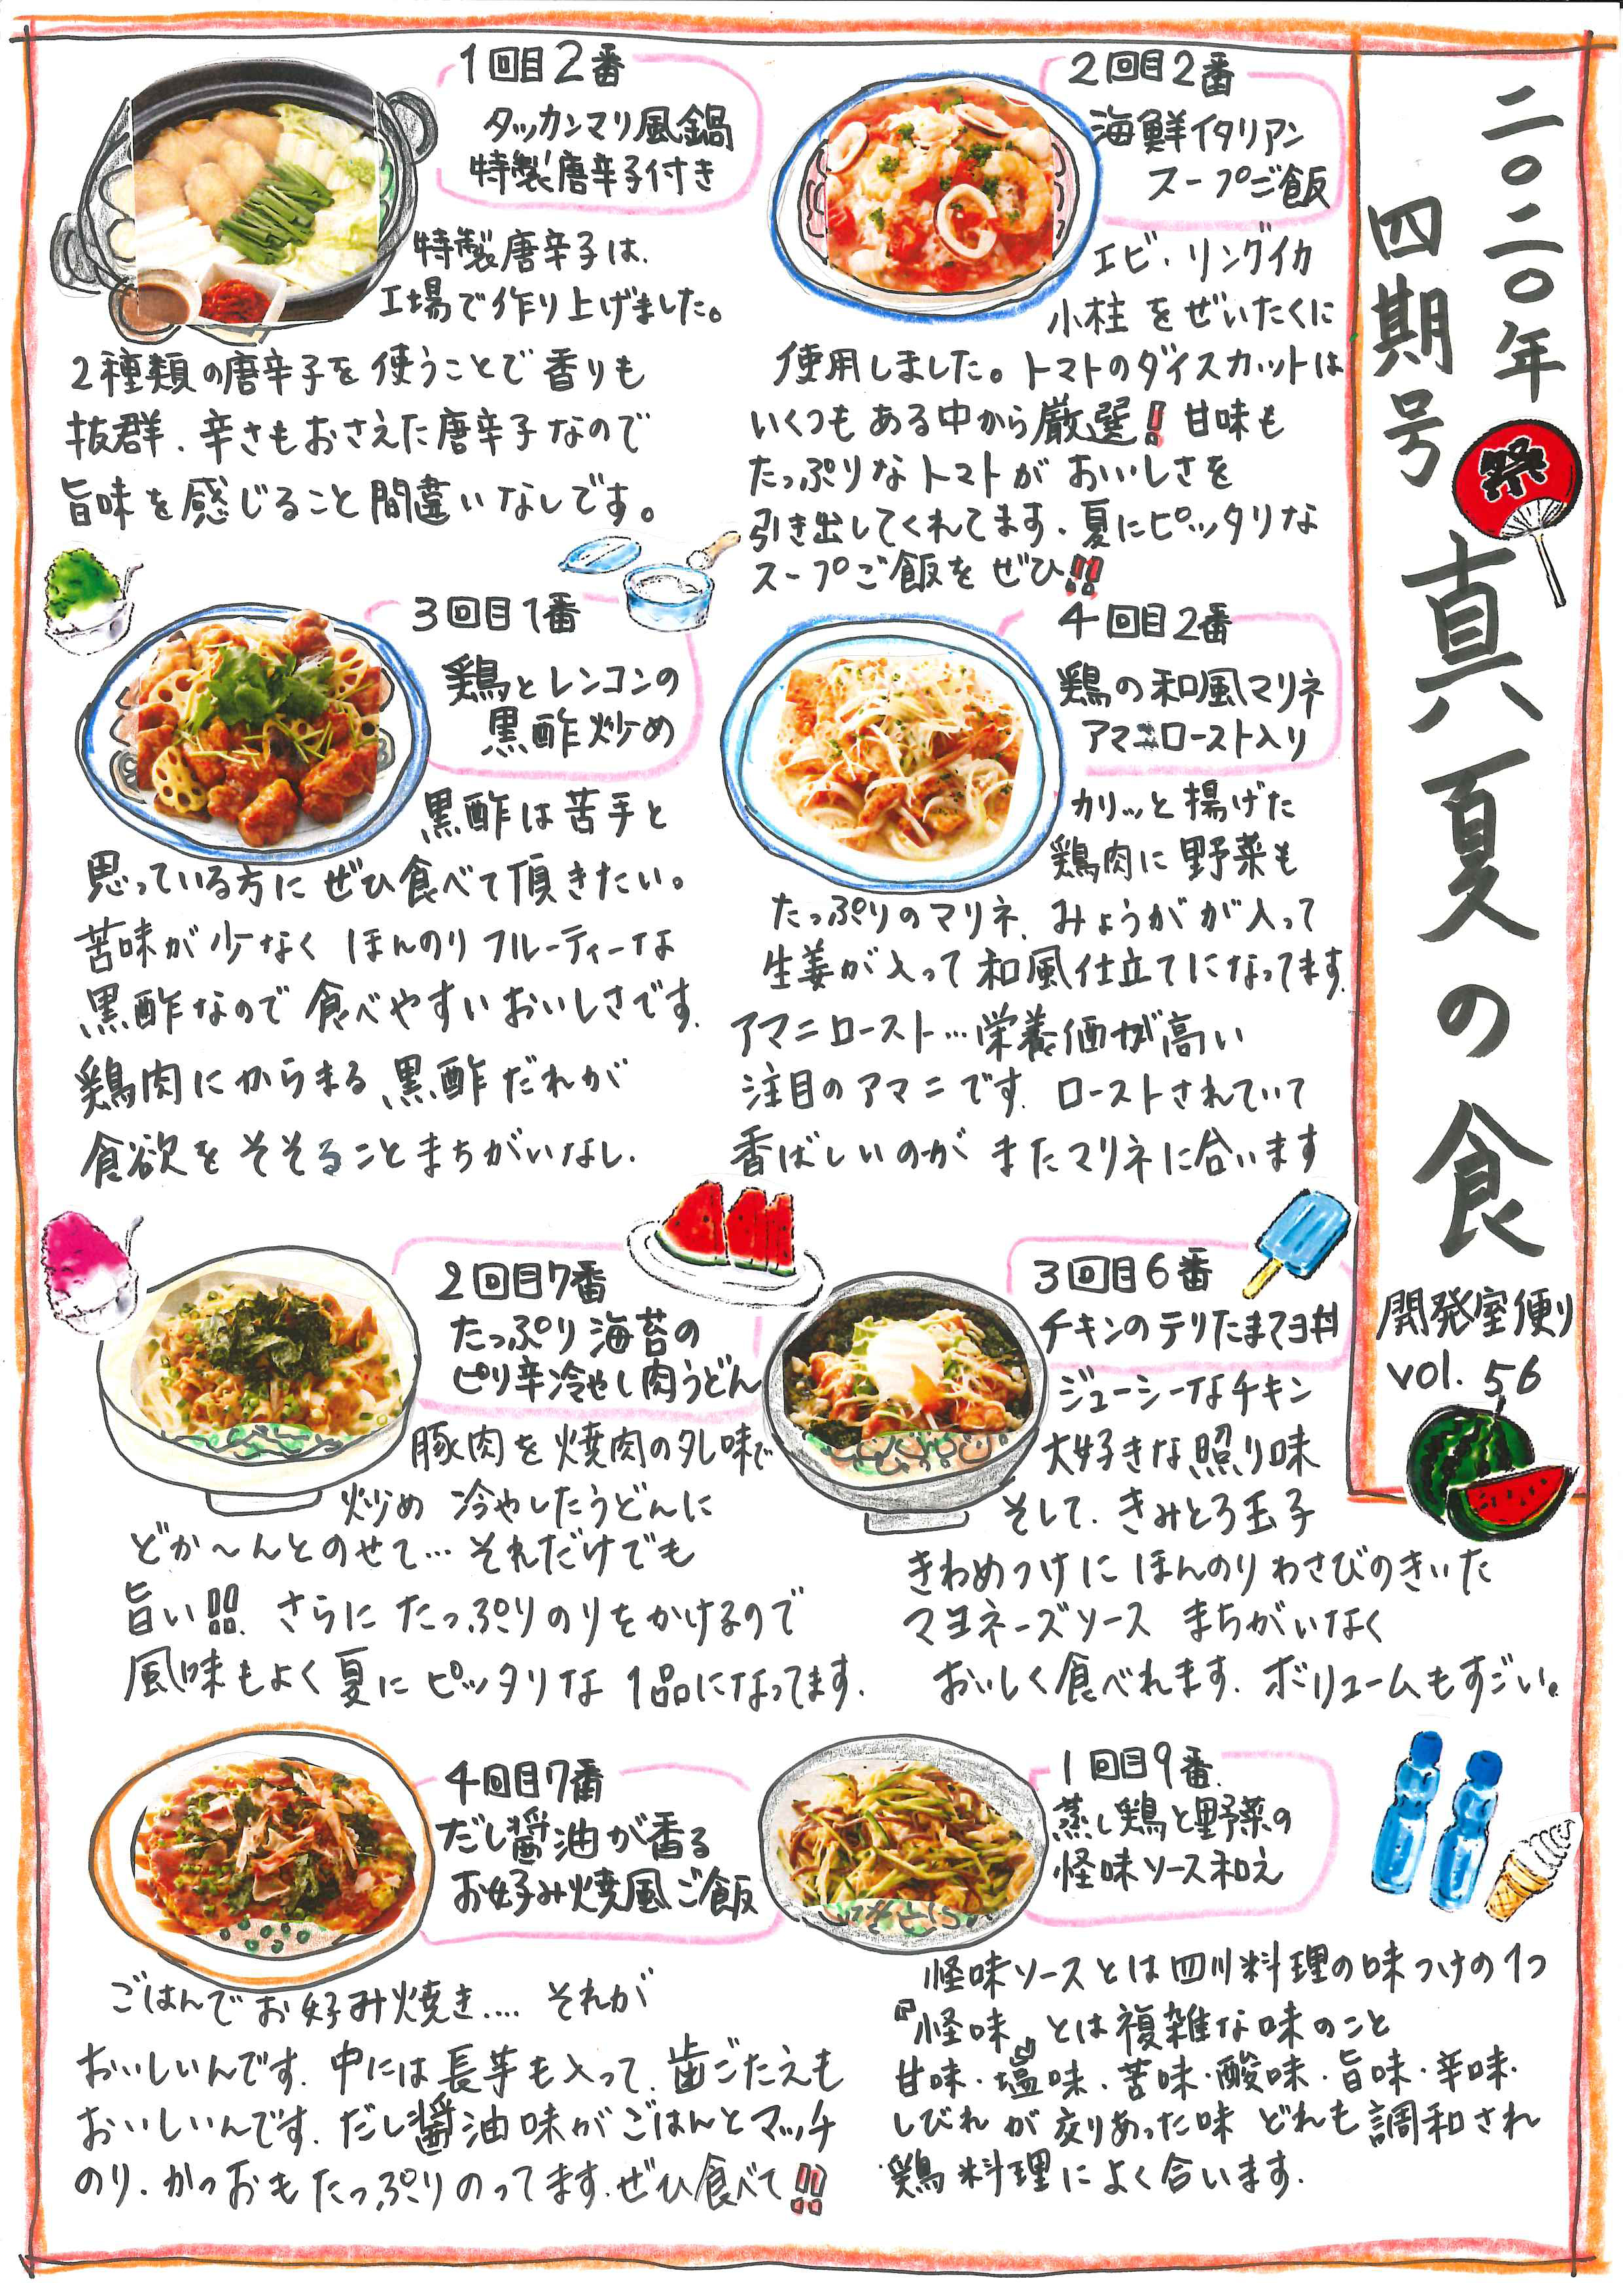 二〇二〇年
四期号
祭
真夏の食
開発室便り
vol. 56
1回目2番
タッカンマリ風鍋
特製唐辛子付き
特製唐辛子は、
工場で作り上げました。
2種類の唐辛子を使うことで香りも
抜群、辛さもおさえた唐辛子なので
旨味を感じること間違いなしです。
2回目2番
海鮮イタリアン
スープご飯
エビ、リングイカ
小柱をぜいたくに
使用しました。トマトのダイスカットは
いくつもある中から厳選!甘味も
たっぷりなトマトがおいしさを
引き出してくれてます、夏にピッタリな
スープご飯をぜひ!!
3回目1番
鶏とレンコンの
黒酢炒め
黒酢は苦手と
思っている方にぜひ食べて頂きたい。
苦味が少なくほんのりフルーティーな
黒酢なので食べやすいおいしさです、
鶏肉にからまる黒酢だれが
食欲をそそることまちがいなし、
4回目2番
鶏の和風マリネ
アマニロースト入り
カリッと揚げた
鶏肉に野菜も
たっぷりのマリネ、みょうがが入って
生姜が入って和風仕立てになってます、
アマニロースト…栄養価が高い
注目のアマニです、ローストされていて
香ばしいのがまたマリネに合います
2回目7番
たっぷり海苔の
ピリ辛冷やし肉うどん
豚肉を焼肉のタレ味で
炒め冷やしたうどんに
どか〜んとのせて…それだけでも
旨い!!、さらにたっぷりのりをかけるので
風味もよく夏にピッタリな1品になってます、
3回目6番
チキンのテリたまマヨ丼
ジューシーなチキン
大好きな照り味
そして、きみとろ玉子
きわめつけにほんのりわさびのきいた
マヨネーズソースまちがいなく
おいしく食べれます、ボリュームもすごい。
4回目7番
だし醤油が香る
お好み焼風ご飯
ごはんでお好み焼き....それが
おいしいんです、中には長芋も入って、歯ごたえも
おいしいんです、だし醤油味がごはんとマッチ
のり、かつおもたっぷりのってます、ぜひ食べて!!
1回目9番、
蒸し鶏と野菜の
怪味ソース和え
怪味ソースとは四川料理の味つけの1つ
『怪味』とは複雑な味のこと
甘味・塩味・苦味・酸味・旨味・辛味・
しびれが交りあった味どれも調和され
鶏料理によく合います、